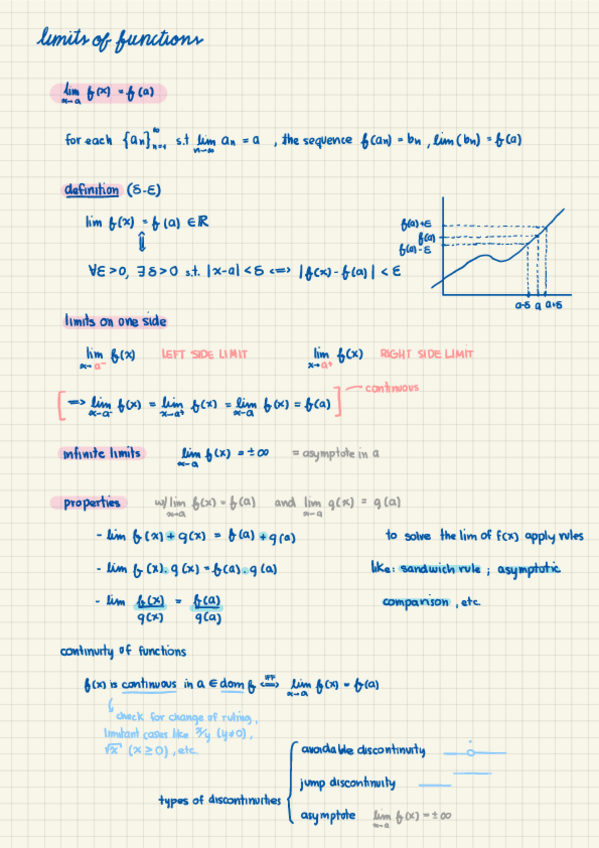 limits of functions
lim x→a f(x) = f(a)
for each {an}∞n=1 s.t lim n→∞ an = a , the sequence f(an) = bn , lim (bn) = f(a)
definition (δ-ε)
lim f(x) = f(a) ∈ℝ
⇕
∀ε>0, ∃δ>0 s.t. |x-a| < δ <=> |f(x)-f(a)| < ε
f(a)+ε
f(a)
f(a)-ε
a-δ a a+δ
limits on one side
lim x→a⁻ f(x) LEFT SIDE LIMIT lim x→a⁺ f(x) RIGHT SIDE LIMIT
[ => lim x→a⁻ f(x) = lim x→a⁺ f(x) = lim x→a f(x) = f(a) ] continuous
infinite limits lim x→a f(x) = ±∞ = asymptote in a
properties w/ lim x→a f(x) = f(a) and lim x→a g(x) = g(a)
- lim f(x) + g(x) = f(a) + g(a)
- lim f(x) . g(x) = f(a) . g(a)
- lim f(x)/g(x) = f(a)/g(a)
to solve the lim of f(x) apply rules
like: sandwich rule ; asymptotic
comparison , etc
continuity of functions
f(x) is continuous in a ∈ dom f <=IFF=> lim x→a f(x) = f(a)
check for change of ruling,
limitant cases like ˣ/y (y≠0),
√x (x≥0), etc.
types of discontinuities
avoidable discontinuity
jump discontinuity
asymptote lim x→a f(x) = ±∞